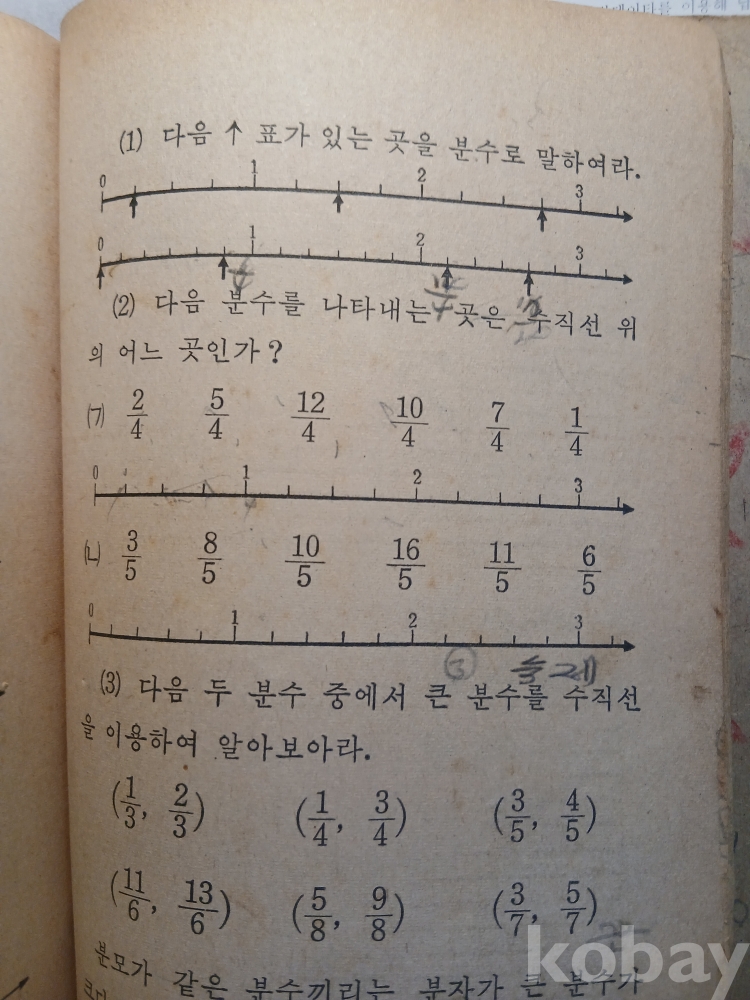 (1) 다음 ↑ 표가 있는 곳을 분수로 말하여라.
0 1 2 3
0 1 2 3
(2) 다음 분수를 나타내는 곳은 수직선 위
의 어느 곳인가?
(ㄱ) 2/4 5/4 12/4 10/4 7/4 1/4
0 1 2 3
(ㄴ) 3/5 8/5 10/5 16/5 11/5 6/5
0 1 2 3
③ 숙제
(3) 다음 두 분수 중에서 큰 분수를 수직선
을 이용하여 알아보아라.
(1/3, 2/3) (1/4, 3/4) (3/5, 4/5)
(11/6, 13/6) (5/8, 9/8) (3/7, 5/7)
분모가 같은 분수끼리는 분자가 큰 분수가
kobay